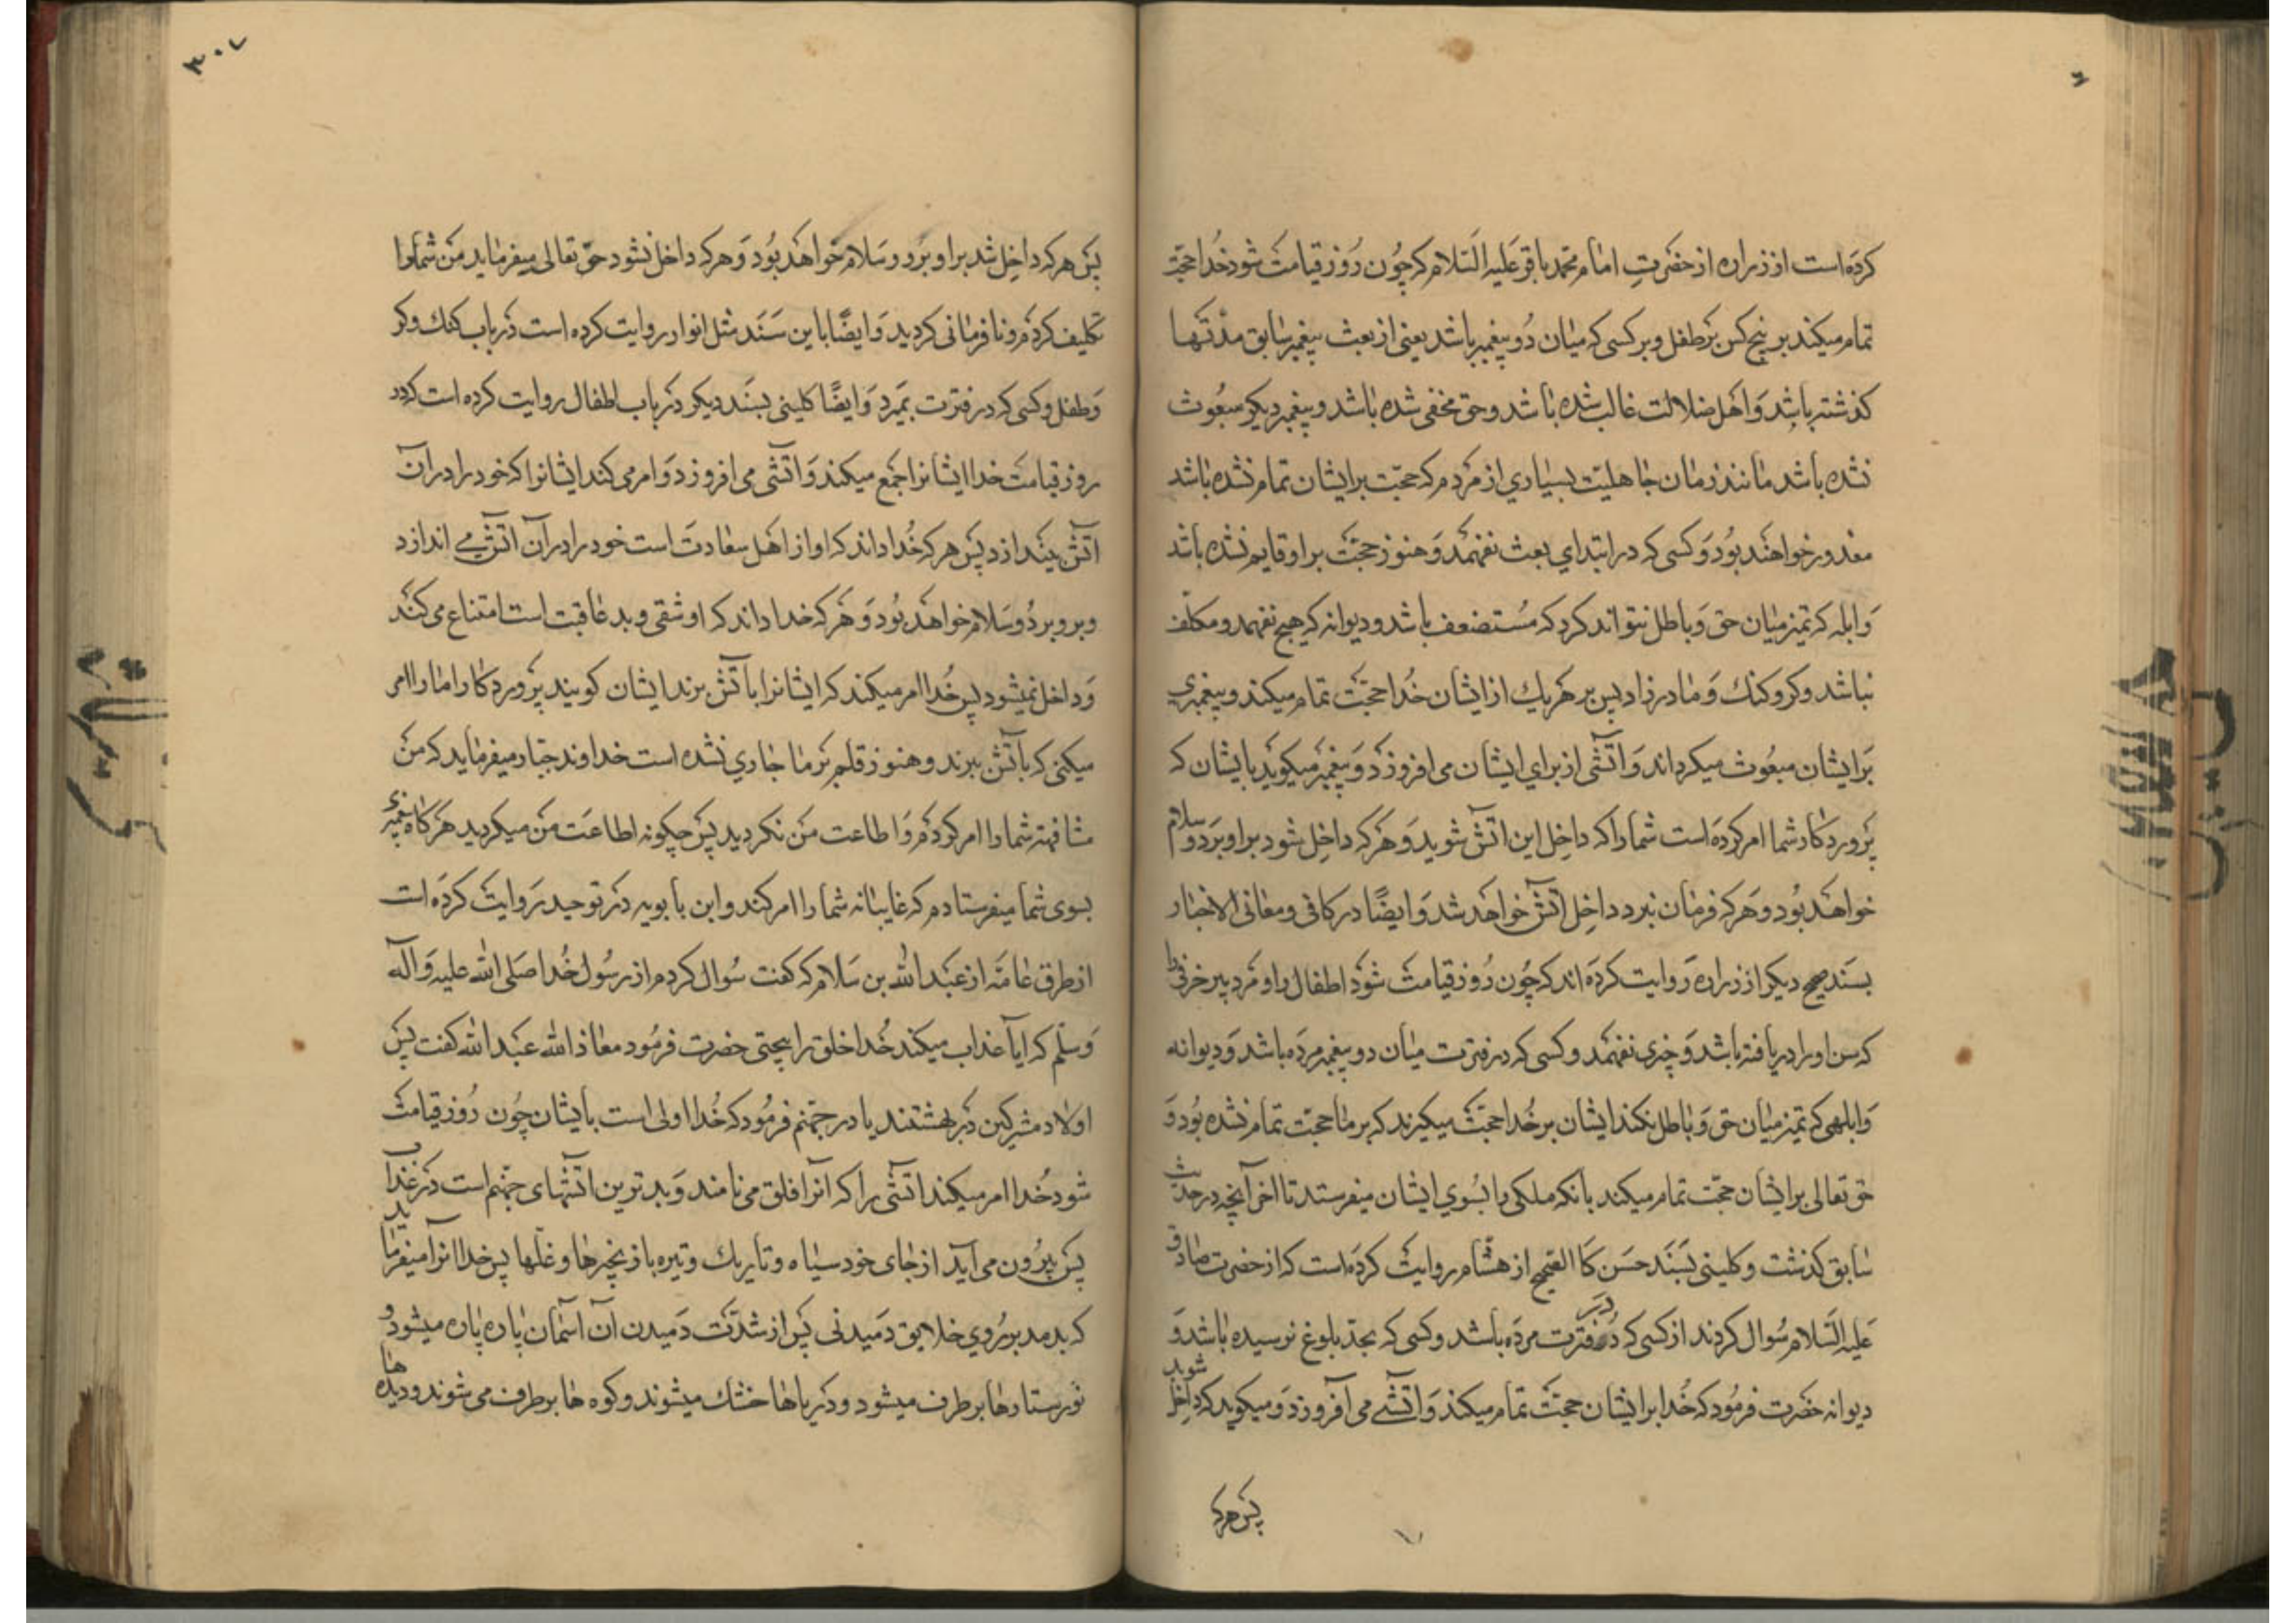 کرده است از زراره از حضرت امام محمد باقر علیه السلام که چون روز قیامت شود خدا حجت
تمام میکند بر پنج کس بر طفل و بر کسی که میان دو پیغمبر باشد یعنی از بعث پیغمبر سابق مدتها
کذشته باشد و اهل ضلالت غالب شده باشد و حق مخفی شده باشد و پیغمبر دیکر مبعوث
نشده باشد مانند زمان جاهلیت بسیاری از مردم که حجت بر ایشان تمام نشده باشد
معذور خواهند بود و کسی که در ابتدای بعث نفهمد و هنوز حجت بر او قایم نشده باشد
و ابله که تمیز میان حق و باطل نتواند کرد که مستضعف باشد و دیوانه که هیچ نفهمد و مکلف
نباشد و کر و کنك و مادرزاد پس بر هر یك از ایشان خدا حجت تمام میکند و پیغمبری
بر ایشان مبعوث میکرداند و آتشی از برای ایشان می افروزد و پیغمبر میکوید بایشان که
پروردکار شما امر کرده است شما را که داخل این آتش شوید و هر که داخل شود بر او برد و سلام
خواهد بود و هر که فرمان نبرد داخل آتش خواهد شد و ایضًا در کافی و معانی الاخبار
بسند صحیح دیکر از زراره روایت کرده اند که چون روز قیامت شود اطفال را و مرد پیر خرفی را
که سن او را دریافته باشد و چیزی نفهمد و کسی که در فترت میان دو پیغمبر مرده باشد و دیوانه
و ابلهی که تمیز میان حق و باطل نکند ایشان بر خدا حجت میکیرند که بر ما حجت تمام نشده بود و
حق تعالی بر ایشان حجت تمام میکند بانکه ملکی را بسوی ایشان میفرستد تا اخر آنچه در حدیث
سابق کذشت و کلینی بسند حسن کالصحیح از هشام روایت کرده است که از حضرت صادق
علیه السلام سُوال کردند از کسی که در فترت مرده باشد و کسی که بحد بلوغ نرسیده باشد و
دیوانه حضرت فرمود که خدا بر ایشان حجت تمام میکند و آتشی می آفروزد و میکوید که داخل شوید
پس هرکه
۳۰۷
پس هر که داخل شد بر او برد و سلام خواهد بود و هر که داخل نشود حق تعالی میفرماید من شما را
تکلیف کردم و نافرمانی کردید و ایضًا باین سند مثل انوار روایت کرده است در باب کنك و کر
و طفل و کسی که در فترت بمیرد و ایضًا کلینی بسند دیکر در باب اطفال روایت کرده است که در
روز قیامت خدا ایشانرا جمع میکند و آتشی می افروزد و امر می کند ایشانرا که خود را در آن
آتش بیندازد پس هر که خدا داند که او از اهل سعادت است خود را در آن آتش می اندازد
و بر و برد و سلام خواهد بود و هر که خدا داند که او شقی و بد عاقبت است امتناع می کند
و داخل نمیشود پس خدا امر میکند که ایشانرا بآتش برند ایشان کویند پروردکارا ما را امر
میکنی که بآتش ببرند و هنوز قلم بر ما جاری نشده است خداوند جبار میفرماید که من
مشافهة شما را امر کردم و اطاعت من نکردید پس چکونه اطاعت من میکردید هر کاه پیغمبری
بسوی شما میفرستادم که غایبانه شما را امر کند و ابن بابویه در توحید روایت کرده است
از طرق عامه از عبد الله بن سلام که کفت سُوال کردم از رسول خدا صلی الله علیه و آله
و سلم که آیا عذاب میکند خدا خلق را بیحجتی حضرت فرمود معاذ الله عبد الله کفت پس
اولاد مشرکین در بهشتند یا در جهنم فرمود که خدا اولی است بایشان چون روز قیامت
شود خدا امر میکند آتشی را که آنرا فلق می نامند و بد ترین آتشهای جهنم است در عذاب
پس بیرون می آید از جای خود سیاه و تاریك و تیره با زنجیرها و غلها پس خدا آنرا میفرماید
که بدمد بر روی خلایق دمیدنی پس از شدت دمیدن آن آسمان پاره پاره میشود و
نور ستارها بر طرف میشود و دریاها خشك میشوند و کوه ها بر طرف می شوند و دیده ها